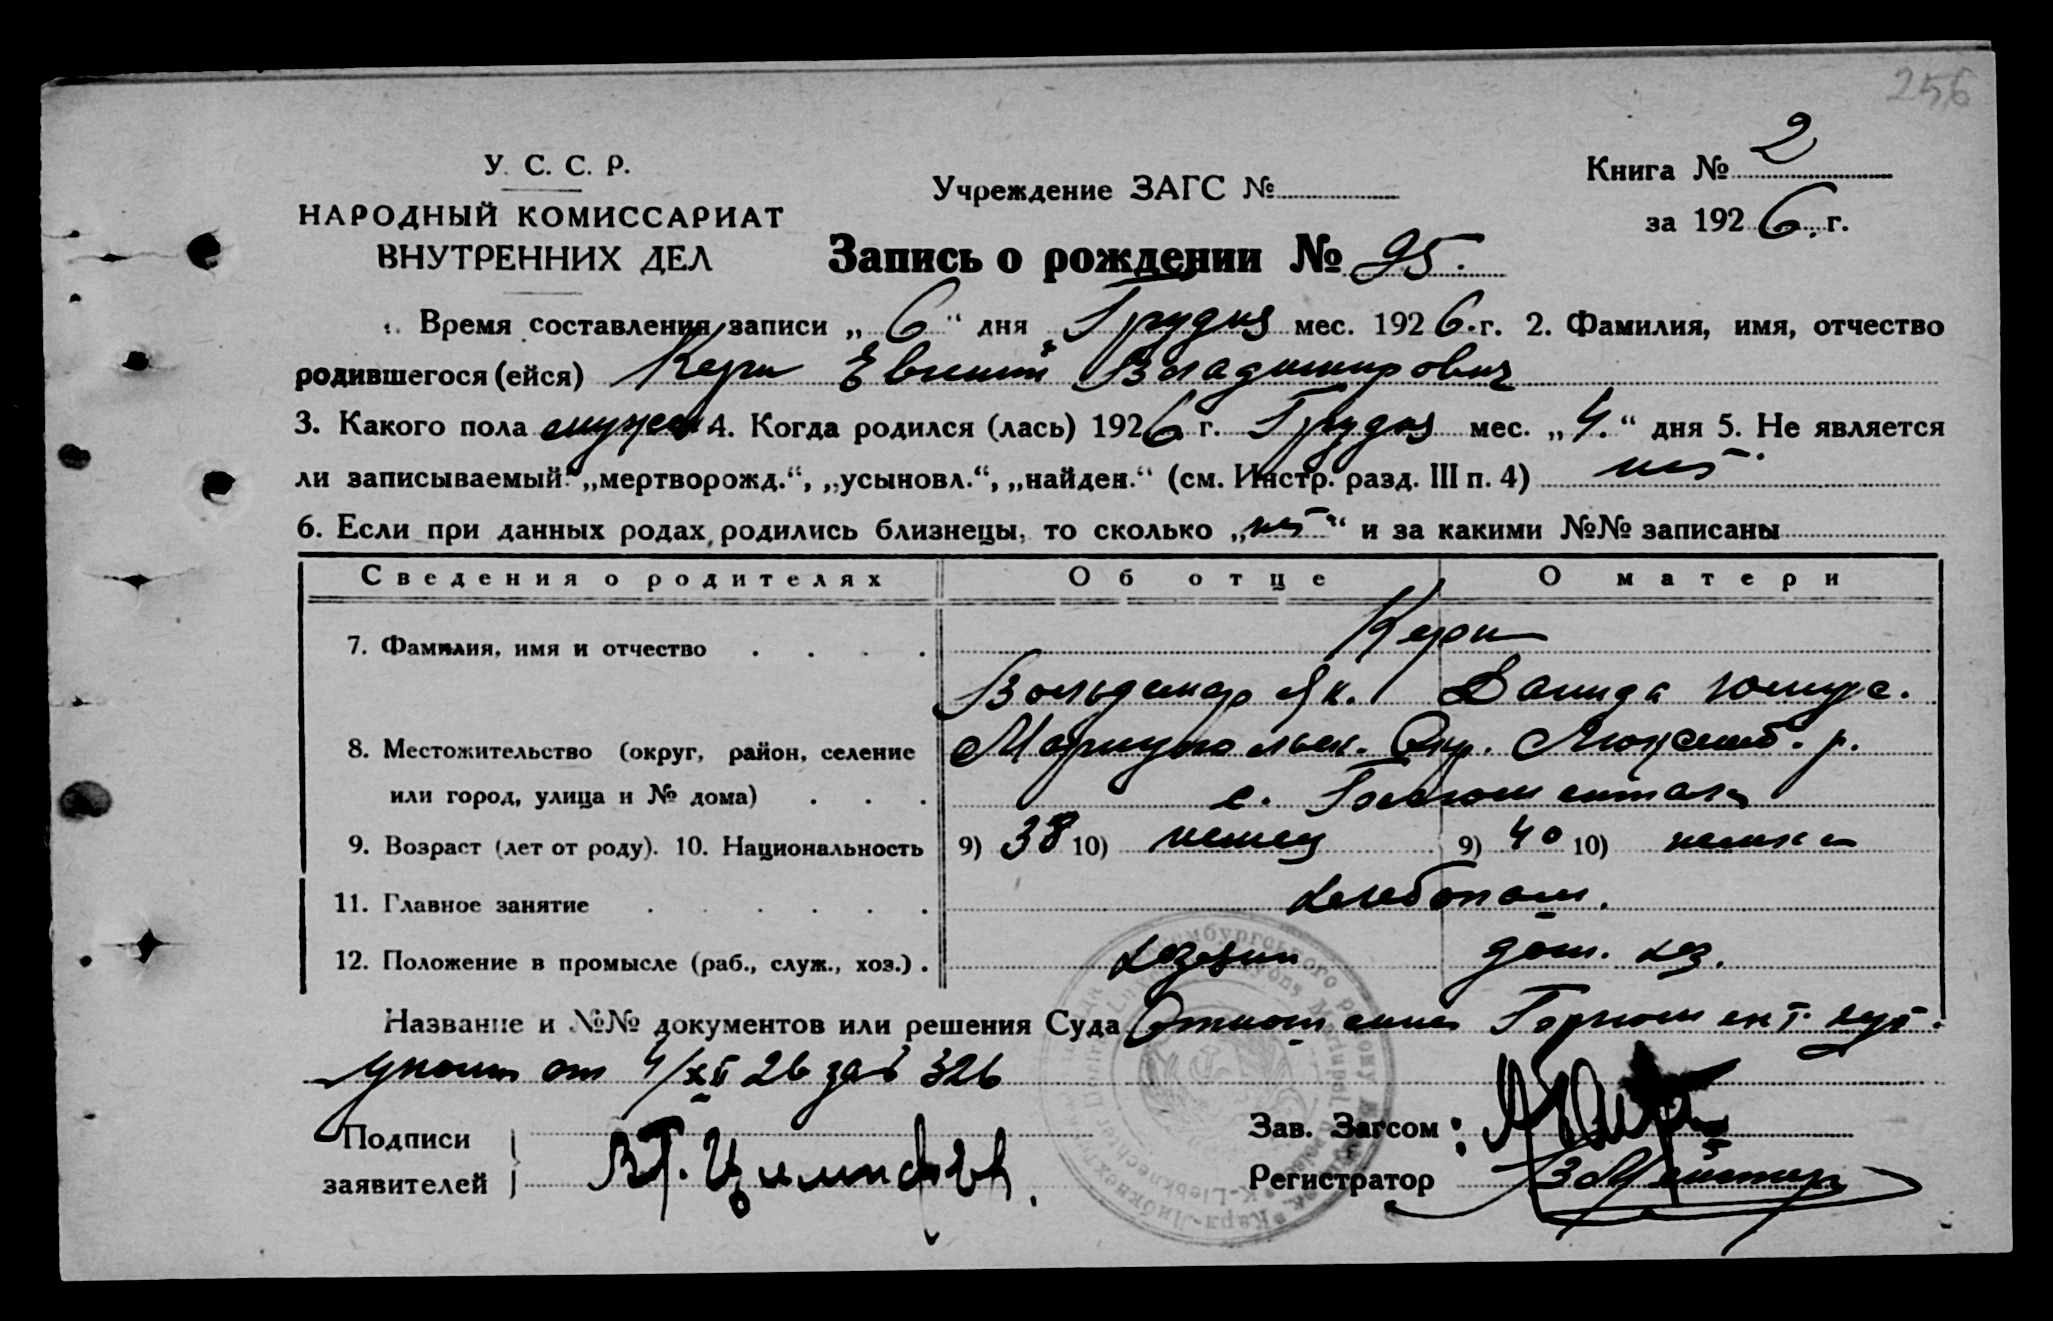 256
У. С. С. Р.
НАРОДНЫЙ КОМИССАРИАТ
ВНУТРЕННИХ ДЕЛ
Учреждение ЗАГС №
Книга № 2
за 1926 г.
Запись о рождении № 95.
1. Время составления записи „6“ дня Грудня мес. 1926 г. 2. Фамилия, имя, отчество
родившегося (ейся) Керн Евгений Владимирович
3. Какого пола мужск 4. Когда родился (лась) 1926 г. Грудня мес. „4.“ дня 5. Не является
ли записываемый „мертворожд.“, „усыновл.“, „найден.“ (см. Инстр. разд. III п. 4) нет.
6. Если при данных родах родились близнецы, то сколько „нет“ и за какими №№ записаны
Сведения о родителях Об отце О матери
7. Фамилия, имя и отчество Керн
Вольдемар Як. Лиида
8. Местожительство (округ, район, селение Мариупольск. Окр. Люксемб. р.
или город, улица и № дома) с.
9. Возраст (лет от роду). 10. Национальность 9) 38 10) немец 9) 40 10) немка
11. Главное занятие хлебопаш.
12. Положение в промысле (раб., служ., хоз.) хозяин дом. хоз.
Название и №№ документов или решения Суда Отношение
от 4/XII 26 за № 326
Подписи
заявителей
Зав. Загсом
Регистратор